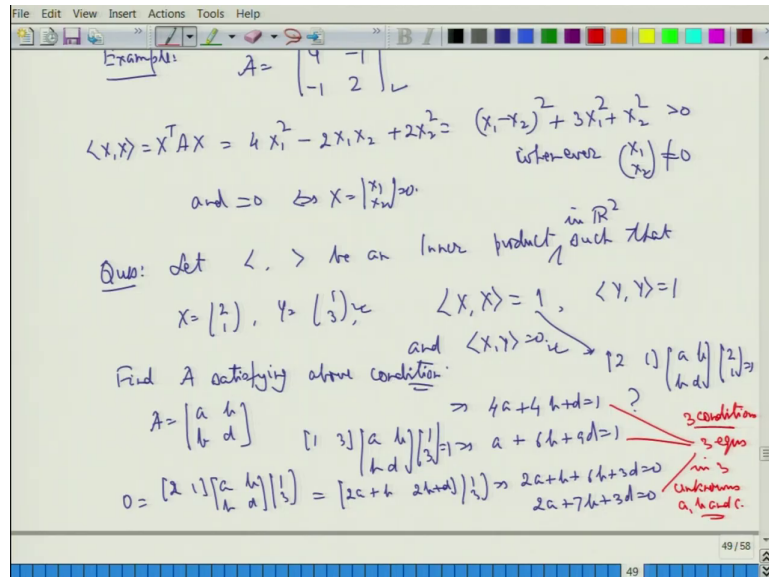 File Edit View Insert Actions Tools Help
Example: A = [4 -1
-1 2]
<X,X> = XᵀAX = 4x₁² - 2x₁x₂ + 2x₂² = (x₁-x₂)² + 3x₁² + x₂² >0
whenever (x₁ x₂) ≠0
and =0 ⇔ X = [x₁ x₂] =0.
Ques: Let < , > be an Inner product in ℝ² such that
X = (2 1), Y = (1 3), <X,X> = 1, <Y,Y> = 1
and <X,Y> =0.
[2 1] [a b
b d] [2 1] =1
Find A satisfying above condition.
⇒ 4a+4b+d=1 ?
A = [a b
b d] [1 3] [a b
b d] [1 3] =1 ⇒ a + 6b + 9d =1
0 = [2 1] [a b
b d] [1 3] = [2a+b 2b+d] [1 3] ⇒ 2a+b+6b+3d=0
2a+7b+3d=0
3 condition
3 eqns
in 3
unknowns
a, b and c.
49 / 58
49